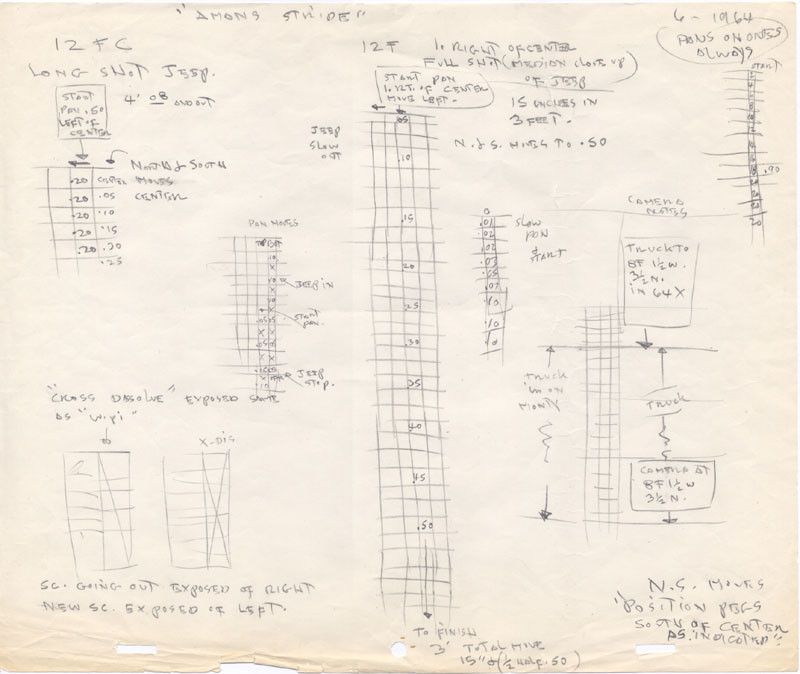 "AMONG STRIDE"
6 - 1964
PANS ON ONES
ALWAYS
START
.90
20
12 FC
LONG SHOT JEEP.
START
PAN .50
LEFT OF
CENTER
4' 08 AND OUT
NORTH & SOUTH
MOVES
CENTER
.20
.20 .05
.20 .10
.20 .15
.20 .20
.25
12 F
1. RIGHT OF CENTER
FULL SHOT (MEDIUM CLOSE UP)
OF JEEP
START PAN
OF CENTER
MOVE LEFT.
15 INCHES IN
3 FEET.
N. & S. MOVES TO .50
JEEP
SLOW
OUT
.05
.10
.15
.20
.25
.30
.35
.40
.45
.50
TO FINISH
3' TOTAL MOVE
15" & (½ HALF .50)
PAN MOVES
JEEP IN
START
PAN.
JEEP
STOP.
0
.01
.02
.02
.03
.05
.07
.10
.10
10
SLOW
PAN
&
START
CAMERA
NOTES
TRUCK TO
8F 1½ W.
3½ N.
IN 64 X
TRUCK
TRUCK
CAMERA AT
8F 1½ W
3½ N.
"CROSS DISSOLVE" EXPOSED SAME
AS "WIPE"
X-DIS
SC. GOING OUT EXPOSED OF RIGHT
NEW SC. EXPOSED OF LEFT.
N.S. MOVES
"POSITION PEGS
SOUTH OF CENTER
AS INDICATED"